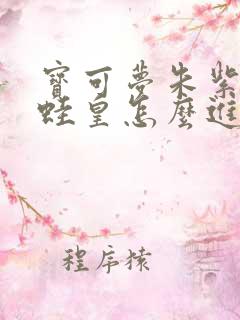 寶可夢朱紫
蛙皇怎麼進
程序猿